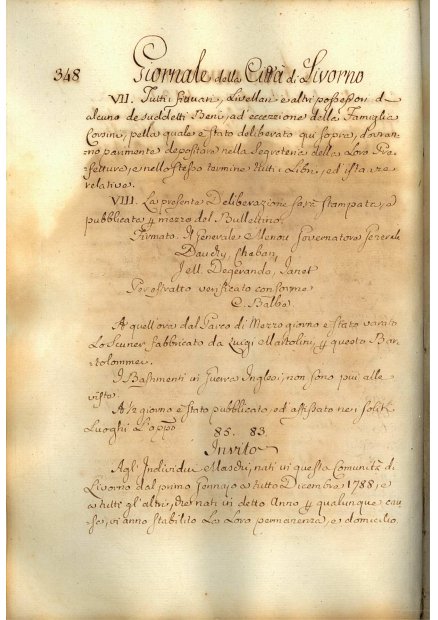 348 Giornale della Città di Livorno
VII. Tutti Fittuari, Livellari e altri possessori d
alcuno de suddetti Beni, ad eccezione della Famiglia
Corsini, pella quale è stato deliberato qui sopra, dovran
no parimente depositare nella Segreteria della Loro Pre
fettura, e nello stesso termine tutti i Libri, ed iscritture
relative.
VIII. La presente Deliberazione sarà stampata, e
pubblicata per mezzo del Bullettino,
Firmato. Il Generale Menou Governatore Generale
Dauchy, Chaban,
Degerando, Janet
Per estratto verificato conforme
C. Balbo
A quell'ora dal Parco di Mezzo giorno è stato varato
Lo Scuner fabbricato da Luigi Martolini, per questo Bar
tolommei
I Bastimenti di Guerra Inglesi, non sono più alle
viste
A giorno è stato pubblicato, ed affissato nei soliti
Luoghi L'appo
85. 83.
Invito
Agl'Individui Maschi, nati in questa Comunità di
Livorno dal primo Gennajo a tutto Dicembre 1788, e
a tutti gl'altri, che nati in detto Anno per qualunque cau
sa, vi anno stabilito La Loro permanenza, e domicilio